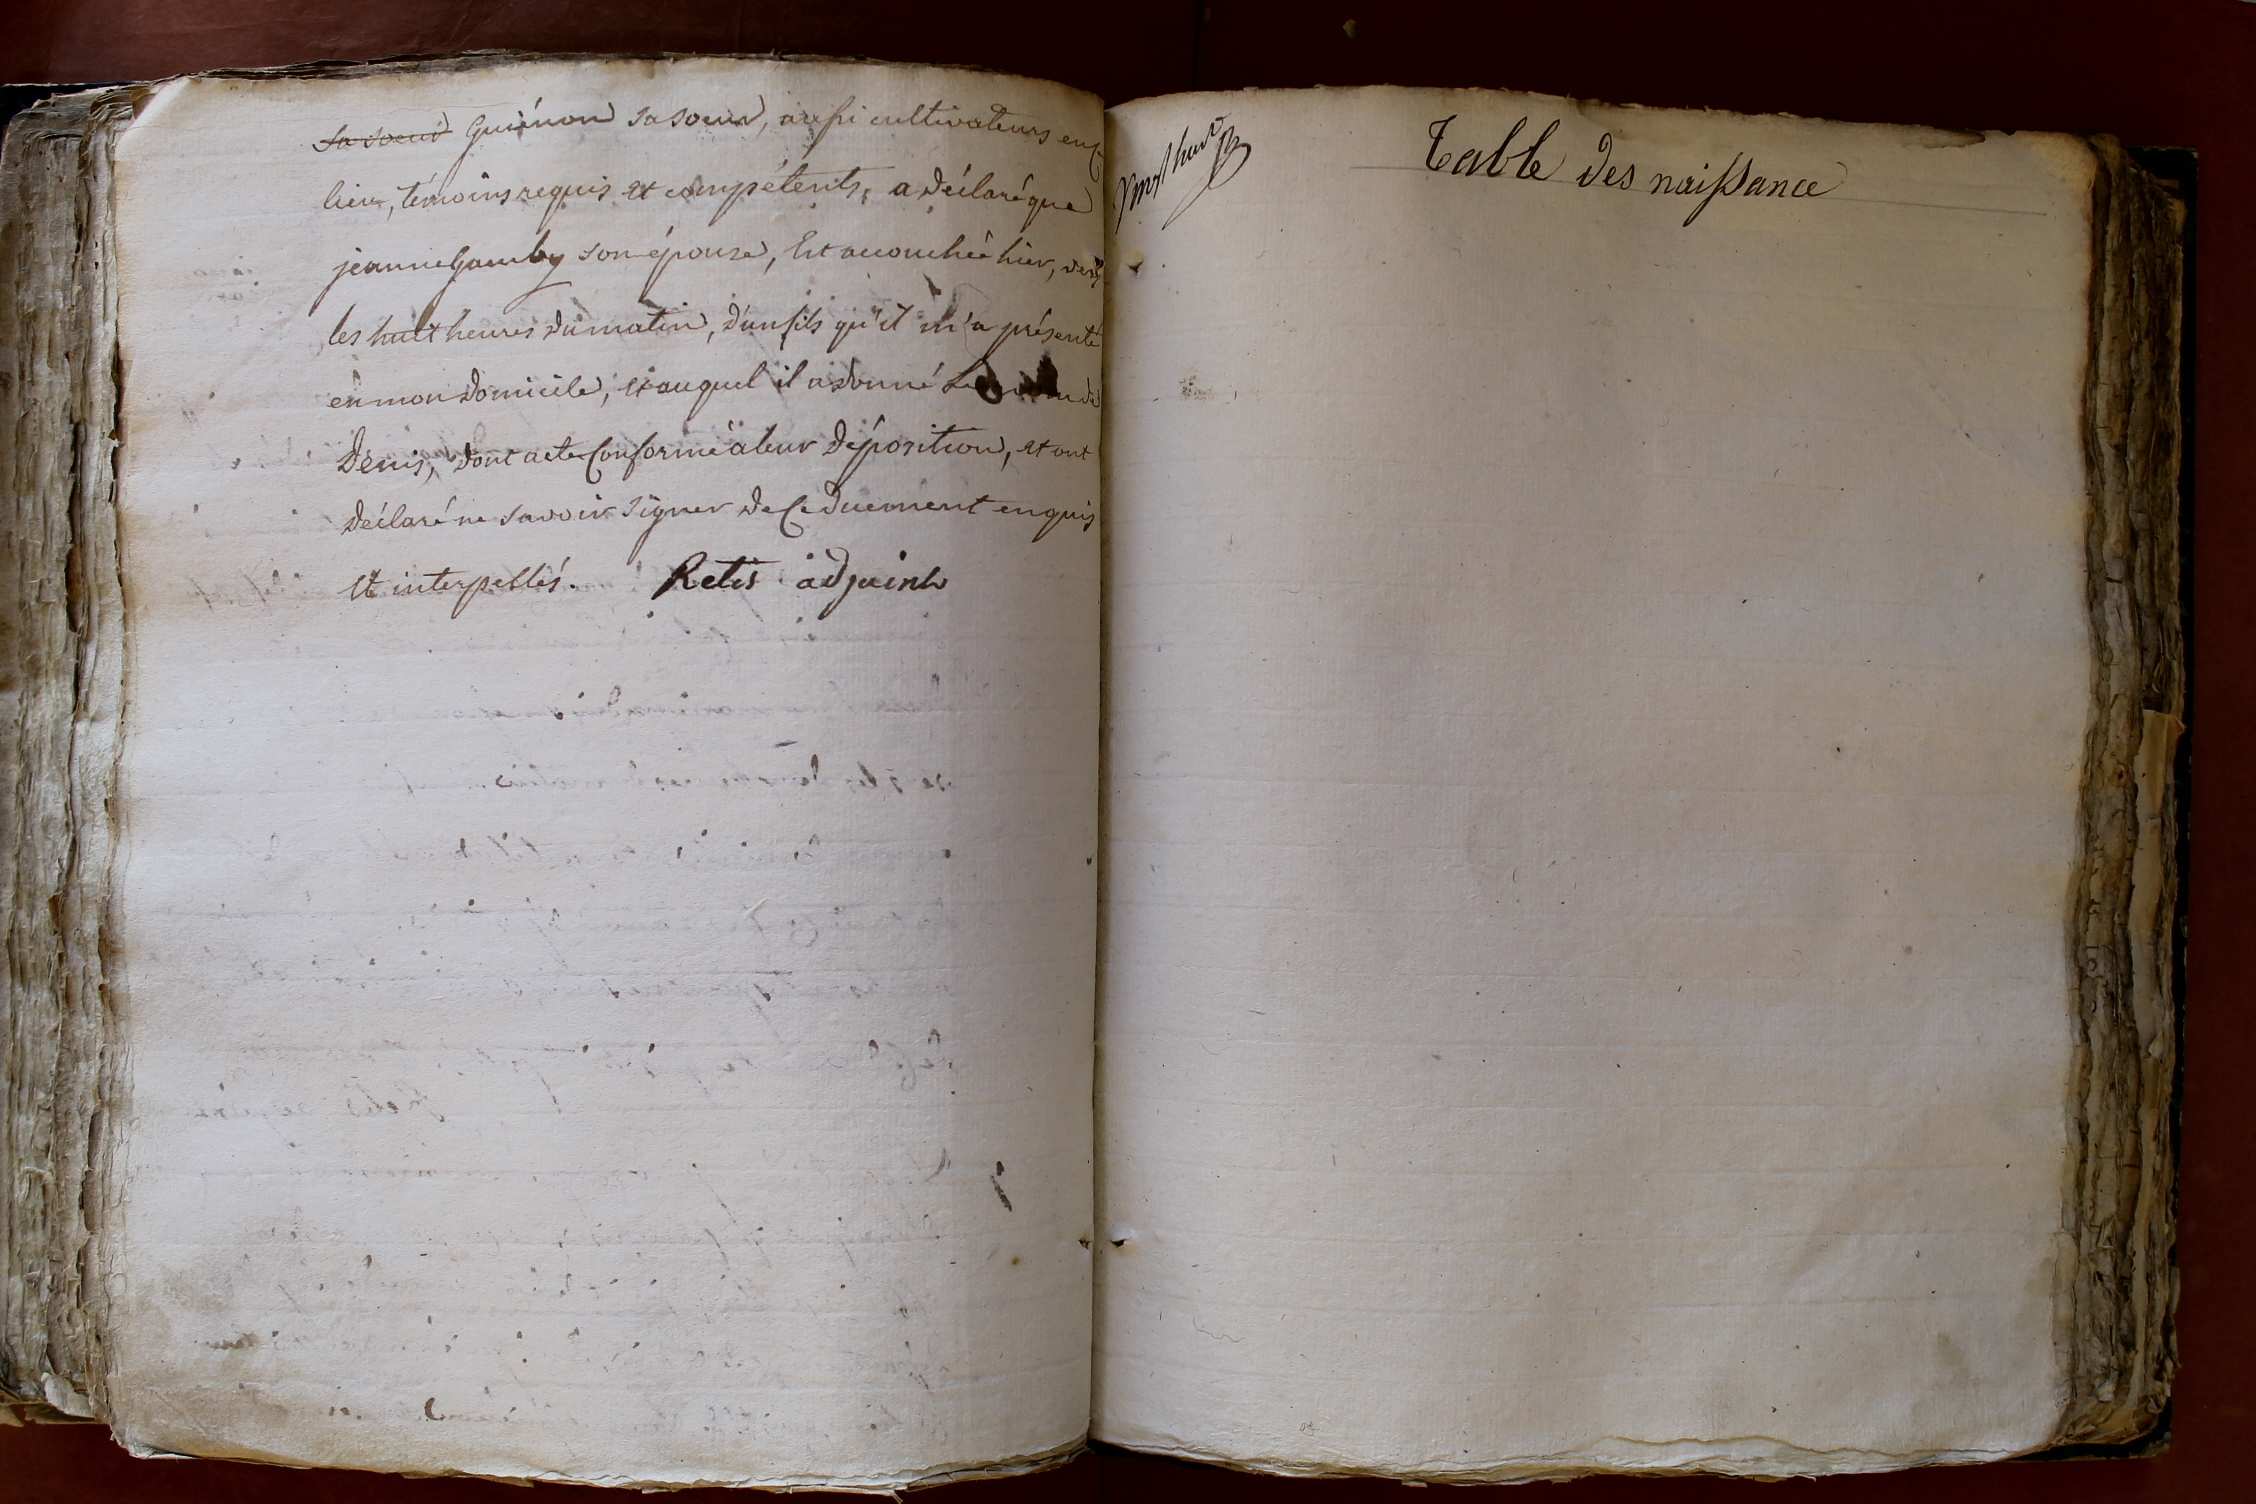 sa soeur Guénon sa soeur, aussi cultivateurs en ce
lieu, témoins requis et compétents, a déclaré que
jeanne Gamby son épouse, Est accouchée hier, vers
les huit heures du matin, d'un fils qu'il m'a présenté
en mon domicile, et auquel il a donné de
Denis, dont acte Conforme à leur déposition, et ont
déclaré ne savoir signer de Ce duement enquis
et interpellés. Retis adjoint
Table des naissance